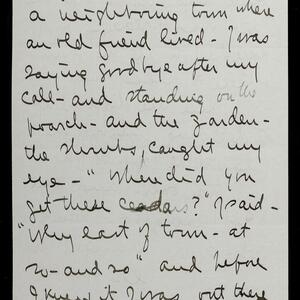 a neighboring town where
an old friend lived - I was
saying goodbye after my
call - and standing on the
porch - and the garden -
the shrubs, caught my
eye - "Where did you
get these cedars?" I said -
"Why east of town - at
so-and so" and before
I knew it I was out there